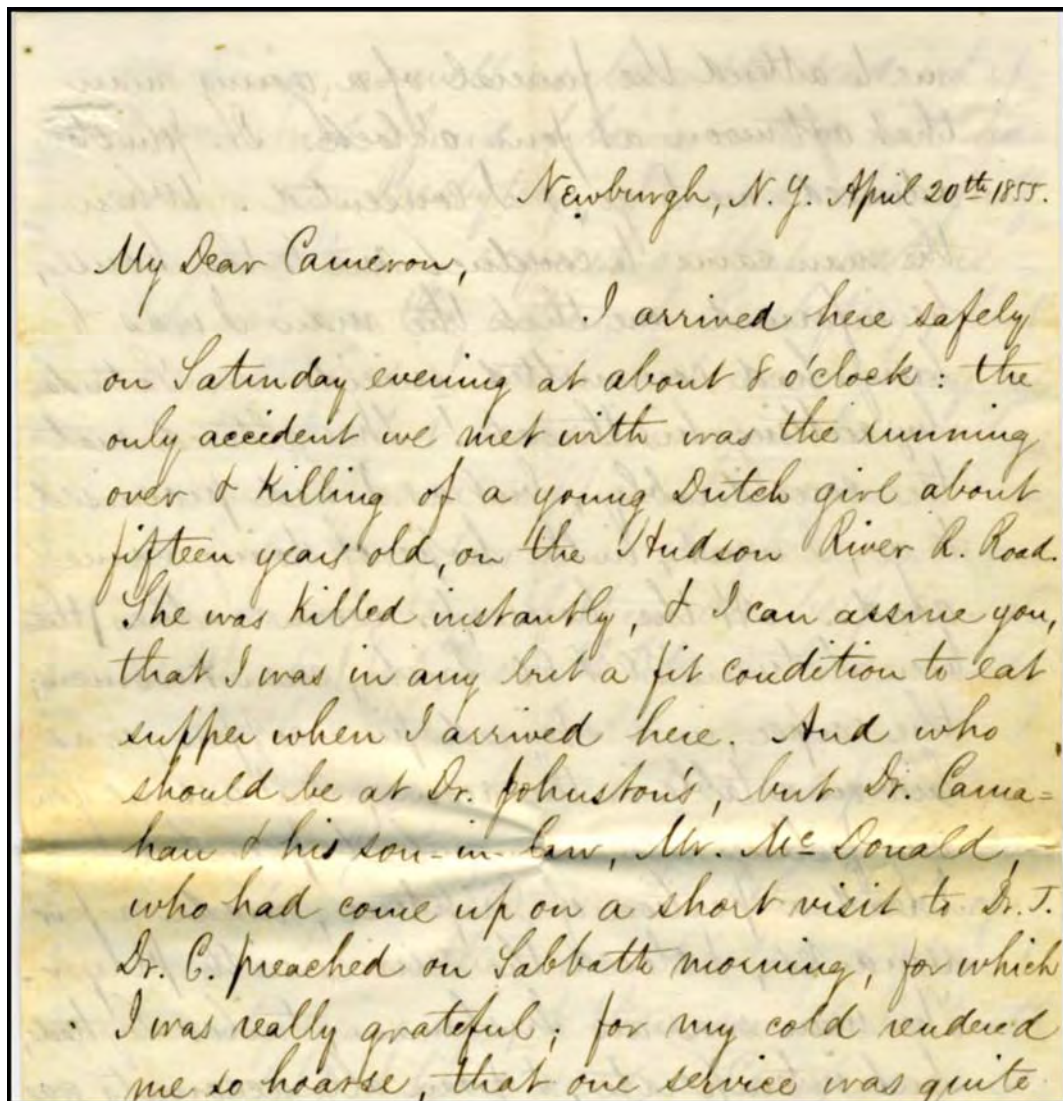 Newburgh, N.Y. April 20th 1855.
My Dear Cameron,
I arrived here safely
on Saturday evening at about 8 o'clock: the
only accident we met with was the running
over & killing of a young Dutch girl about
fifteen years old, on the Hudson River R. Road.
She was killed instantly, & I can assure you,
that I was in any but a fit condition to eat
supper when I arrived here. And who
should be at Dr. Johnston's, but Dr. Carna=
han & his son-in-law, Mr. Mc Donald,-
who had come up on a short visit to Dr. J.
Dr. C. preached on Sabbath morning, for which
I was really grateful; for my cold rendered
me so hoarse, that one service was quite